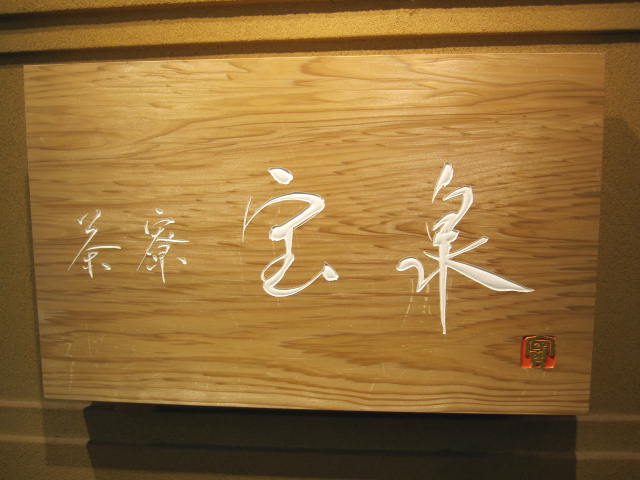 茶寮 宝泉